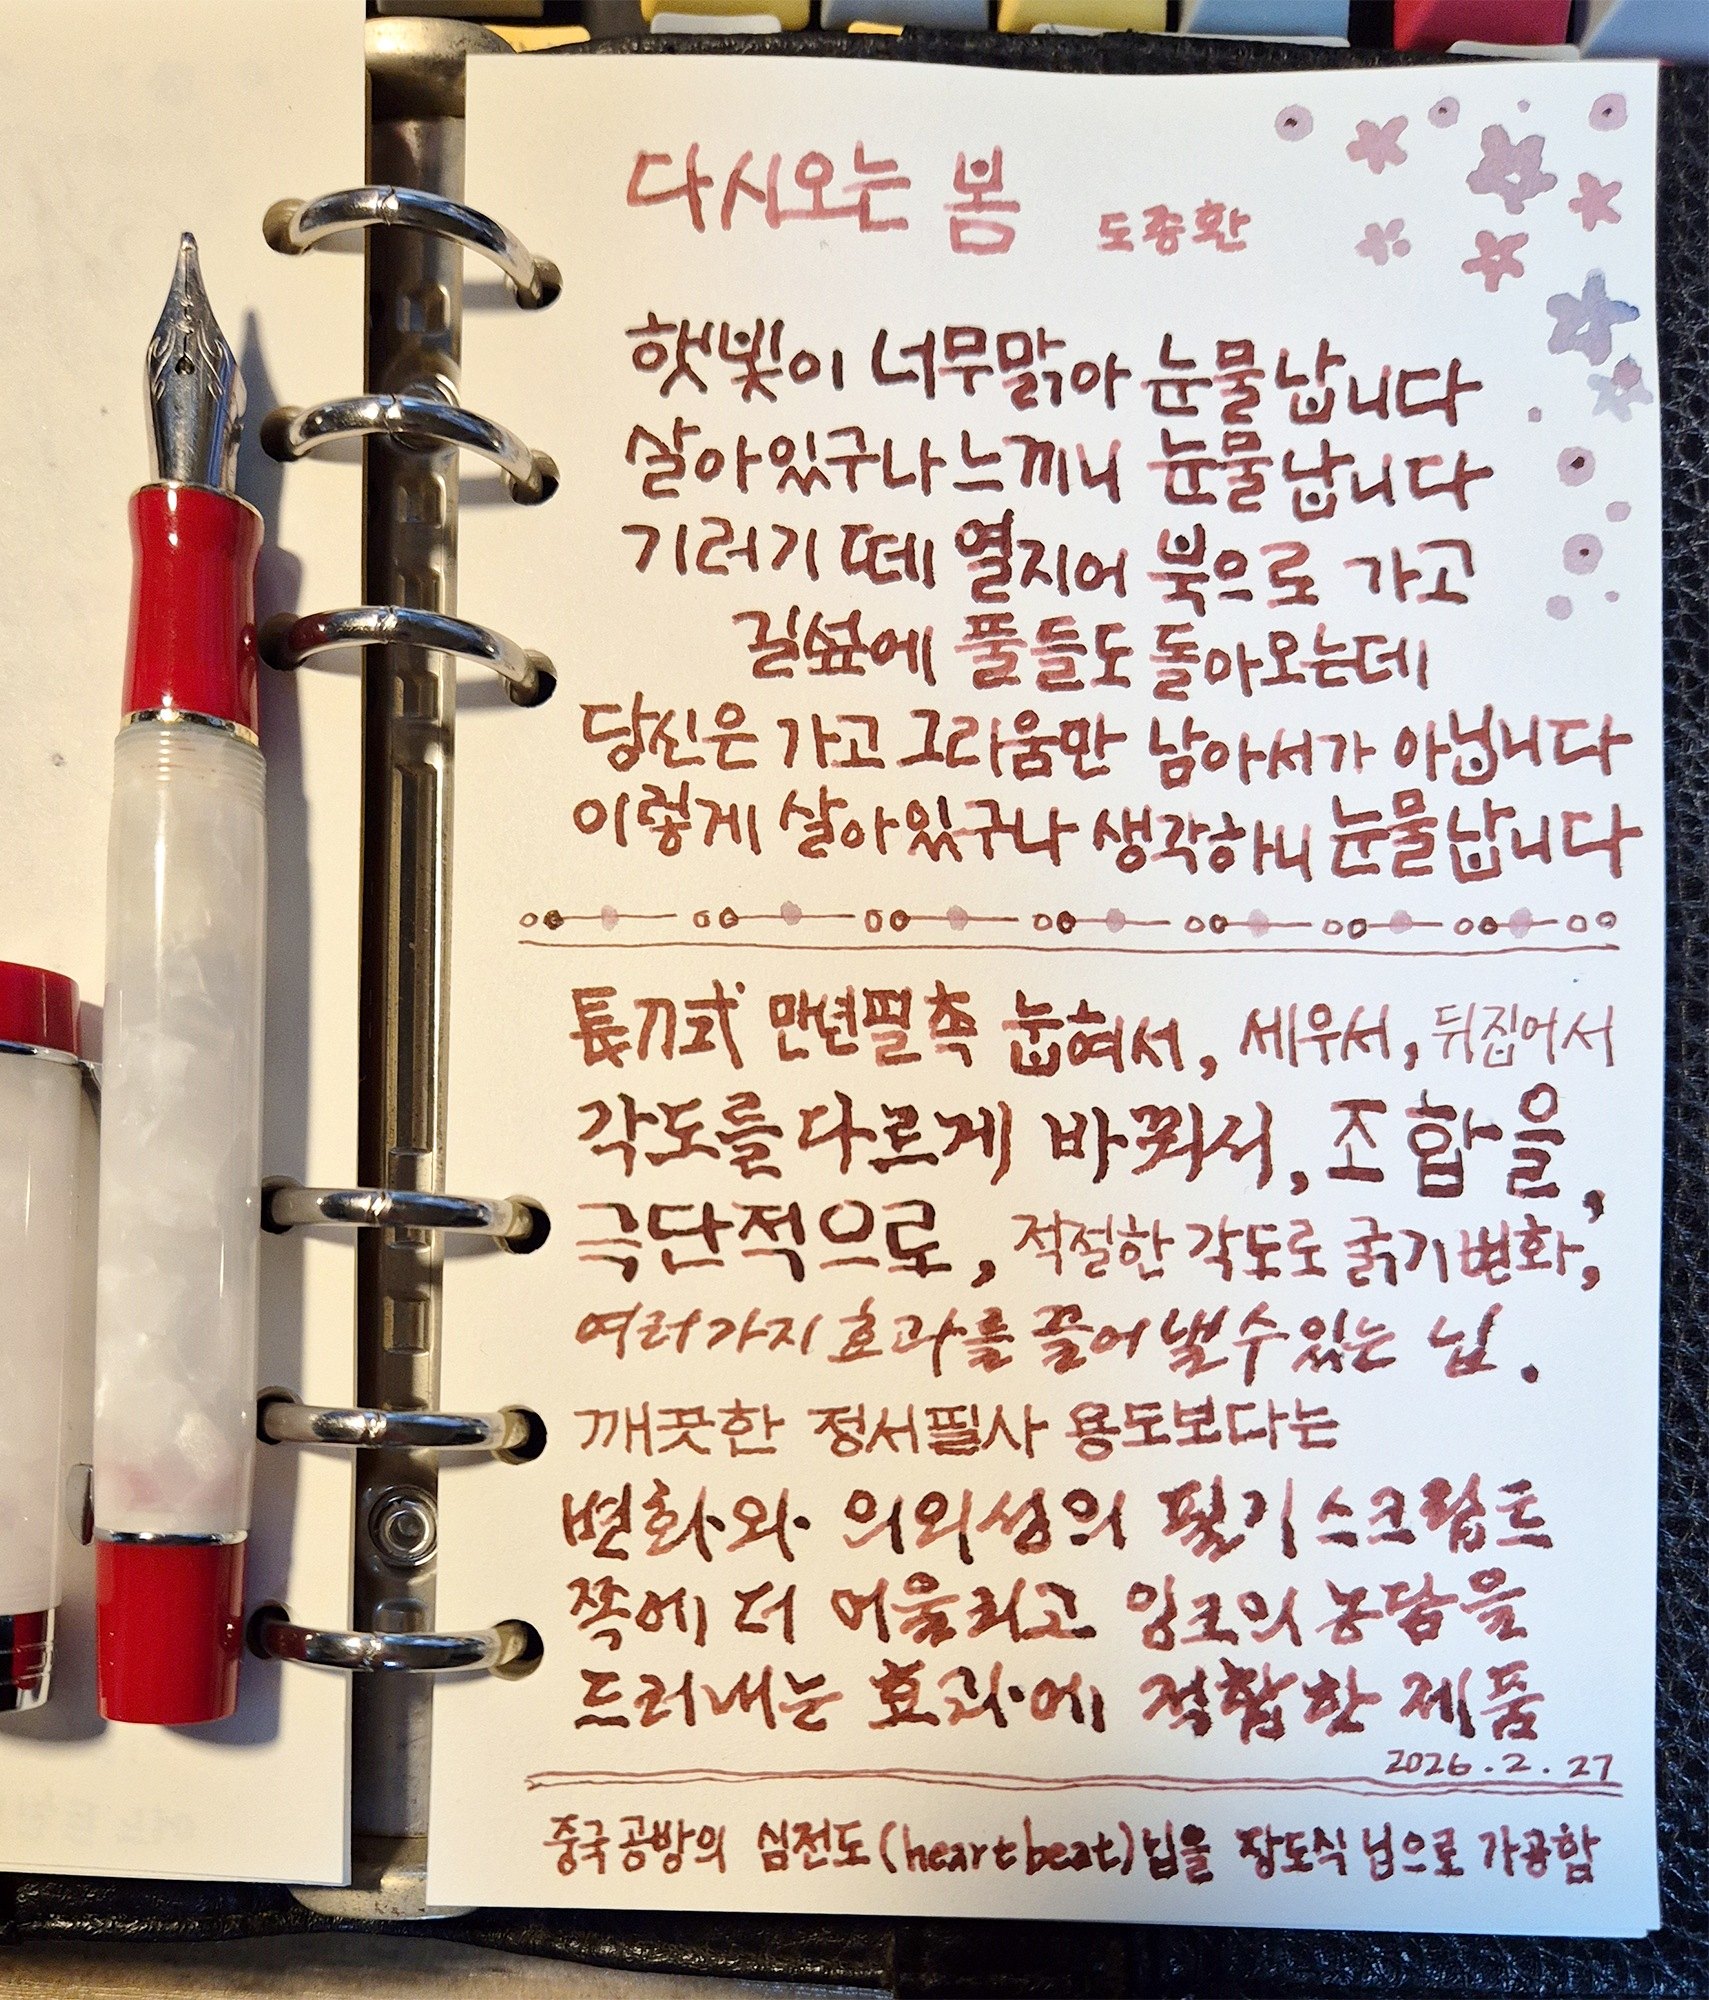 다시오는 봄 도종환
햇빛이 너무맑아 눈물납니다
살아있구나 느끼니 눈물납니다
기러기 떼 열지어 북으로 가고
길섶에 풀들도 돌아오는데
당신은 가고 그리움만 남아서가 아닙니다
이렇게 살아있구나 생각하니 눈물납니다
長刀式 만년필촉 눕혀서, 세우서, 뒤집어서
각도를 다르게 바꿔서, 조합을,
극단적으로, 적절한 각도로 굵기변화,
여러가지 효과를 끌어낼수있는 닙.
깨끗한 정서필사 용도보다는
변화와 의외성의 필기스크립트
쪽에 더 어울리고 잉크의 농담을
드러내는 효과에 적합한 제품
2026.2.27
중국공방의 심전도(heartbeat)닙을 장도식닙으로 가공함